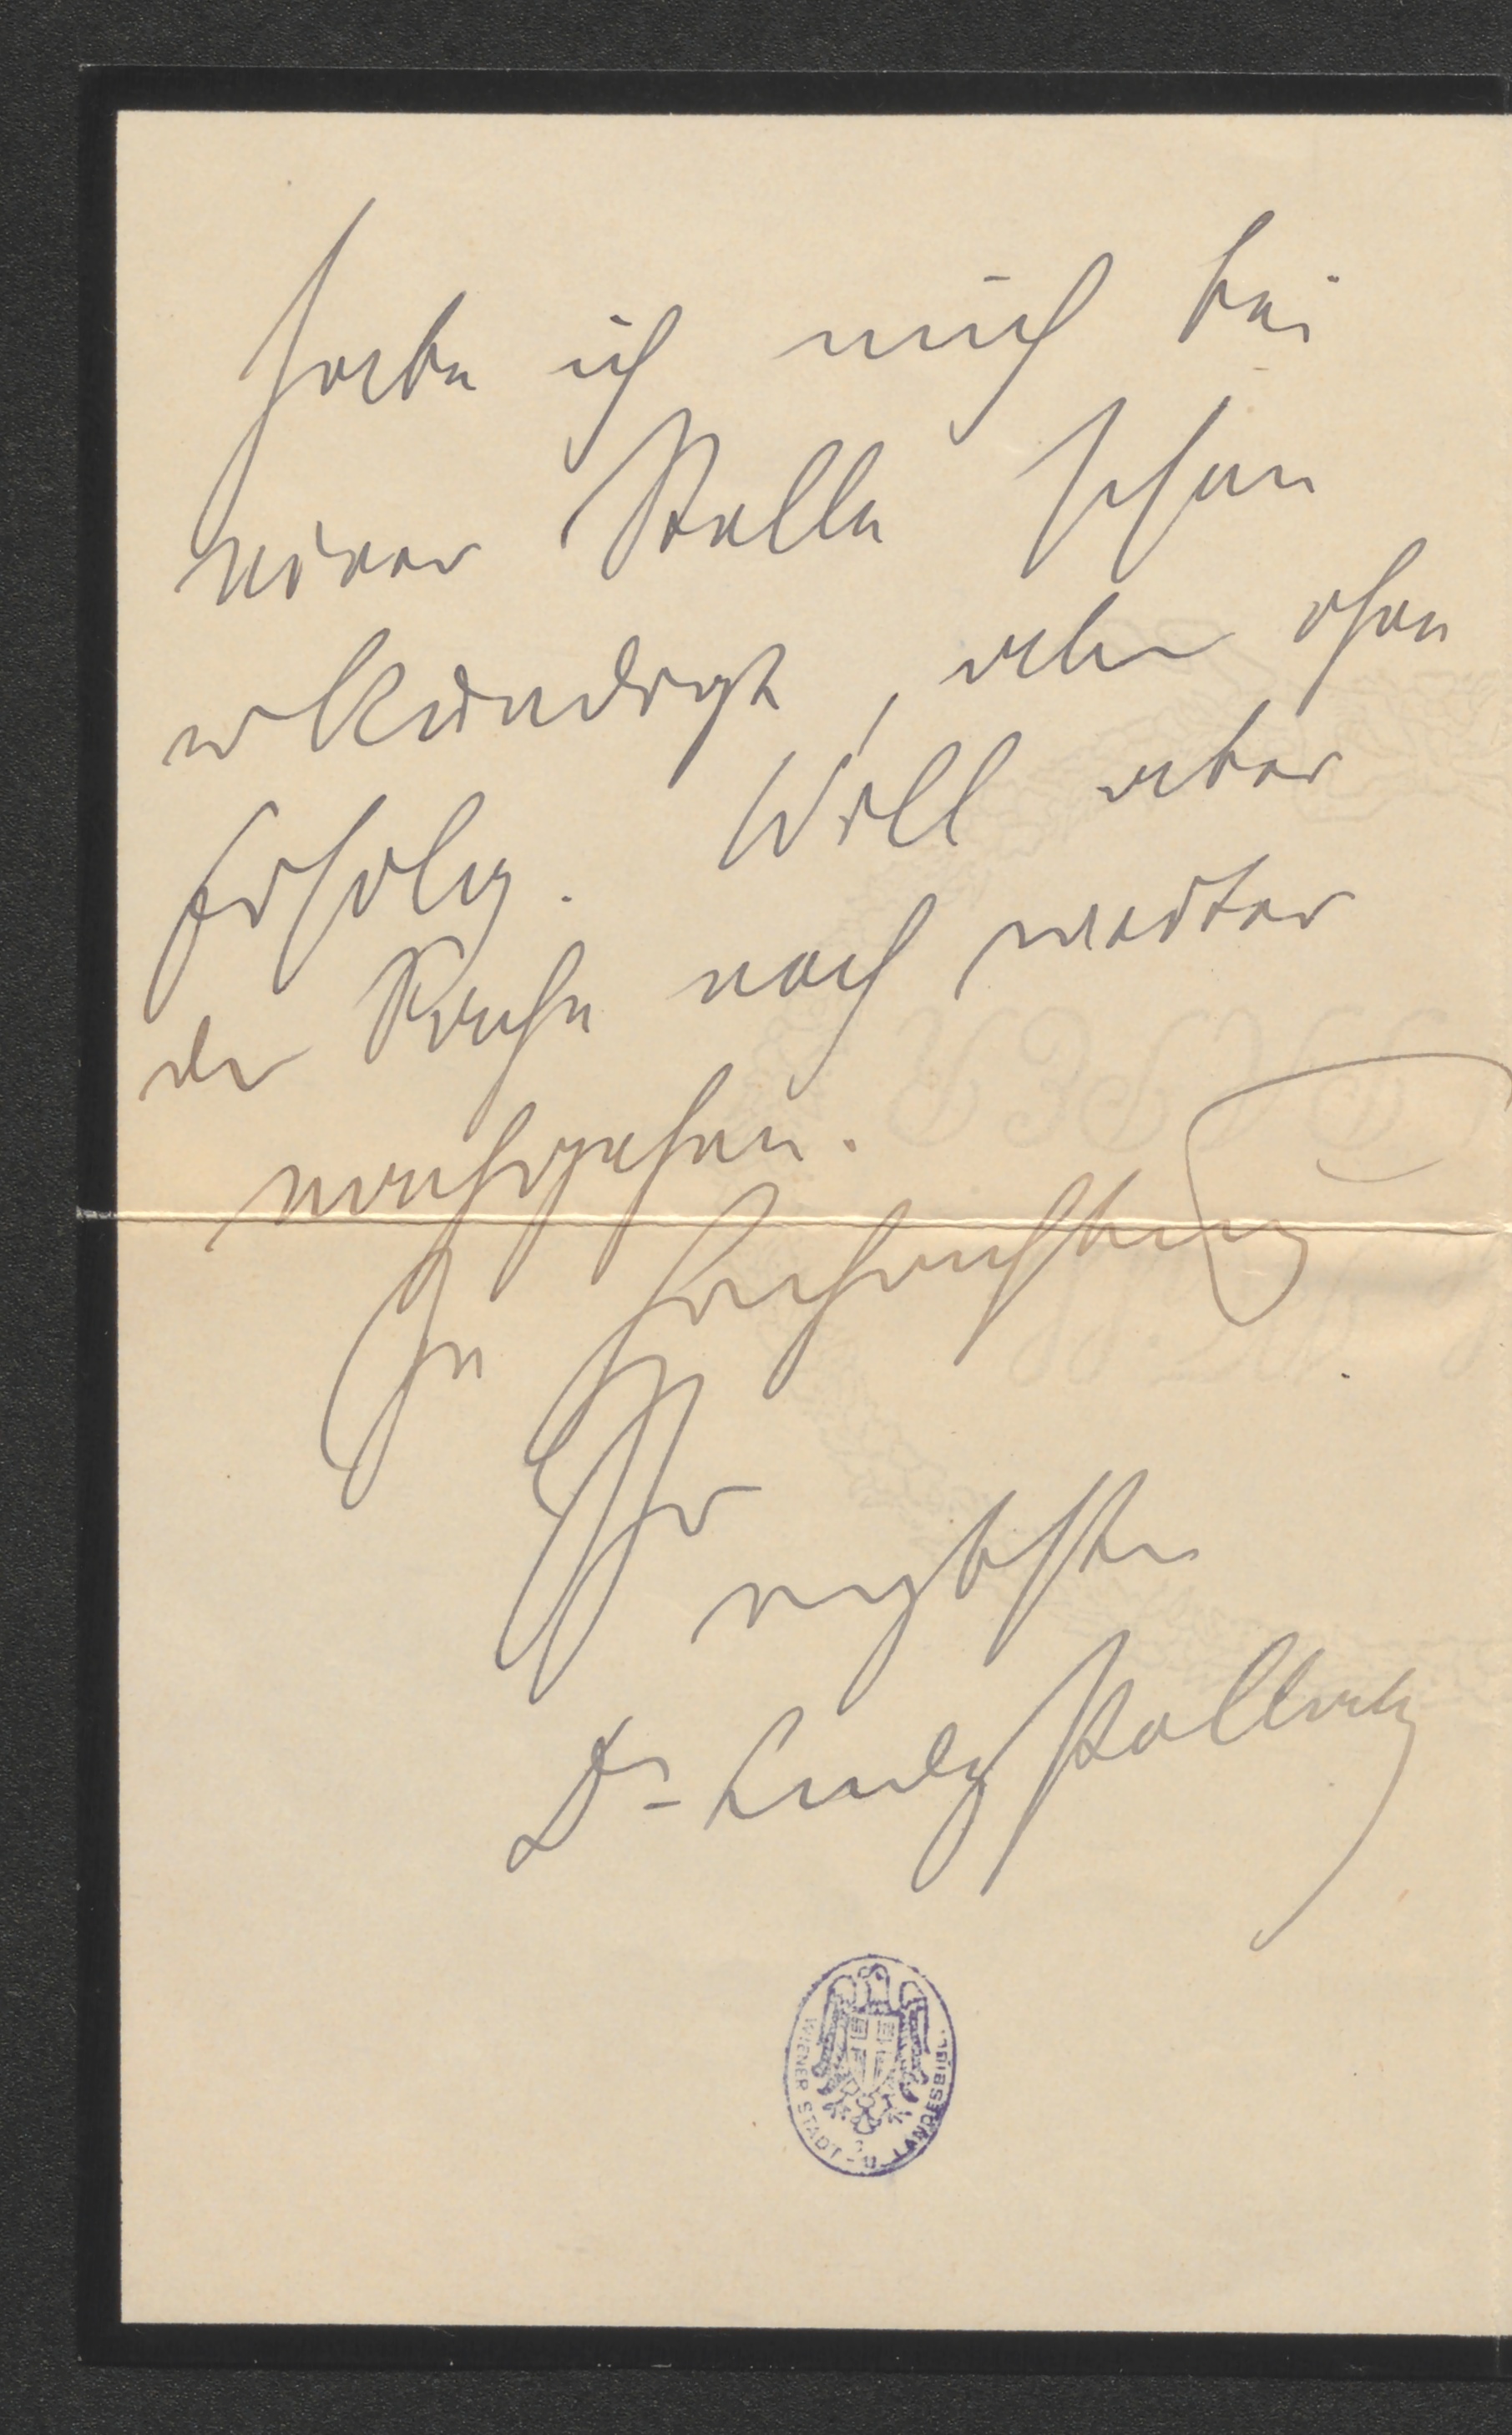 habe ich mich bei
einer Stelle schon
erkundigt, aber ohne
Erfolg. Will aber
der Sache noch weiter
nachgehen.
In Hochachtung
Ihr
ergebster
Dr. Ludwg Pollak
WIENER STADT- U. LANDESBIBL.